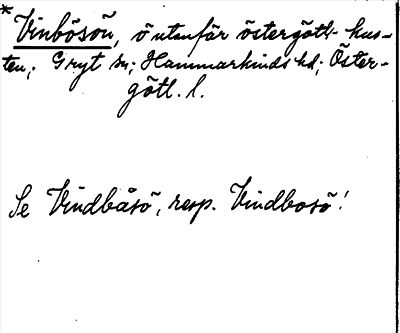 * Vinbösön, ö utanför östergötl. kus-
ten; Gryt sn; Hammarkinds hd; Öster-
götl. l.
Se Vindbåsö, resp. Vindbosö!